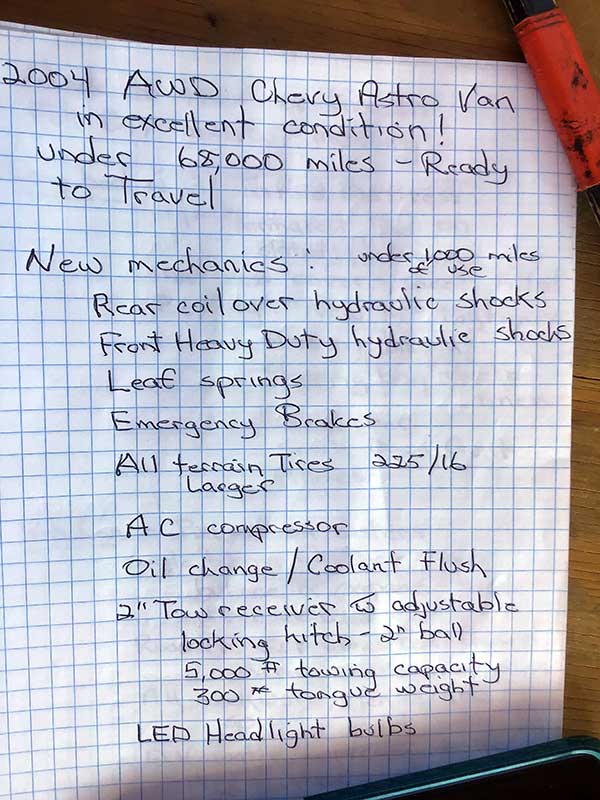 2004 AWD Chevy Astro Van
in excellent condition!
under 68,000 miles - Ready
to Travel
New mechanics: under 1000 miles
of use
Rear coil over hydraulic shocks
Front Heavy Duty hydraulic shocks
Leaf springs
Emergency Brakes
All terrain Tires 225/16
Larger
AC compressor
Oil change / Coolant Flush
2" Tow receiver w adjustable
locking hitch - 2" ball
5,000 # towing capacity
300 # tongue weight
LED Headlight bulbs